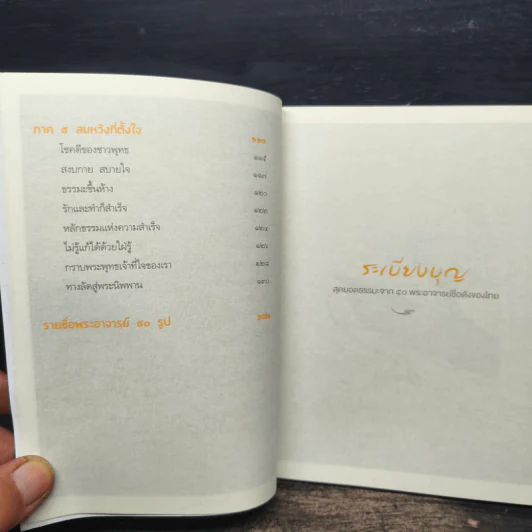 ภาค ๕ สมหวังที่ตั้งใจ
โชคดีของชาวพุทธ
สงบกาย สบายใจ
ธรรมะขึ้นห้าง
รักและทำก็สำเร็จ
หลักธรรมแห่งความสำเร็จ
ไม่รู้แก้ได้ด้วยใฝ่รู้
กราบพระพุทธเจ้าที่ใจของเรา
ทางลัดสู่พระนิพพาน
รายชื่อพระอาจารย์ ๕๐ รูป
ระเบียงบุญ
สุดยอดธรรมะจาก ๕๐ พระอาจารย์ชื่อดังของไทย